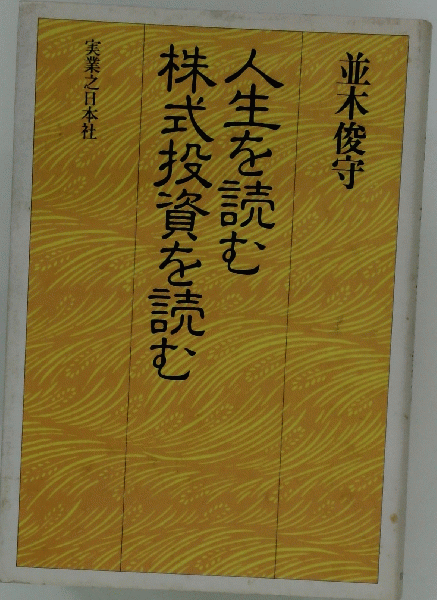 並木俊守
人生を読む
株式投資を読む
実業之日本社